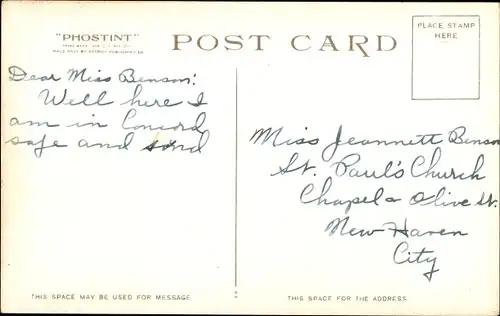 "PHOSTINT"
POST CARD
PLACE STAMP
HERE
Dear Miss Benson:
Well here I
am in Concord
safe and sound
Miss Jeannett Benson
St. Paul's Church
Chapel & Olive St.
New Haven
City
THIS SPACE MAY BE USED FOR MESSAGE.
THIS SPACE IS FOR THE ADDRESS.